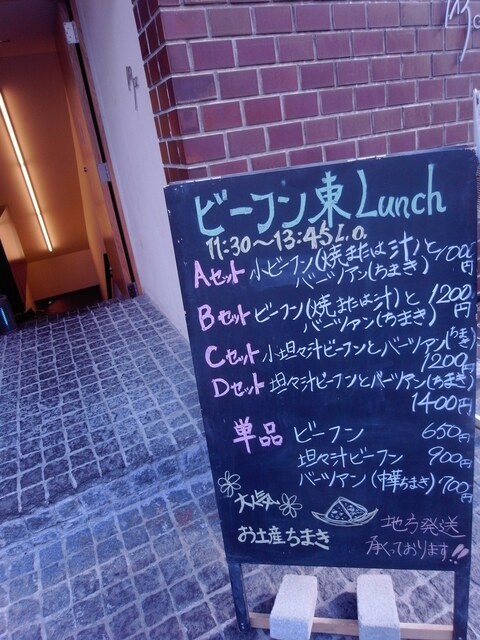 ビーフン東 Lunch
11:30〜13:45 L.O.
Aセット 小ビーフン(焼または汁)と バーツアン(ちまき) 1000円
Bセット ビーフン(焼または汁)と バーツアン(ちまき) 1200円
Cセット 小坦々汁ビーフンとバーツアン(ちまき) 1200円
Dセット 坦々汁ビーフンとバーツアン(ちまき) 1400円
単品 ビーフン 650円
坦々汁ビーフン 900円
バーツアン(中華ちまき) 700円
大人気
お土産ちまき
地方発送
承っております!!